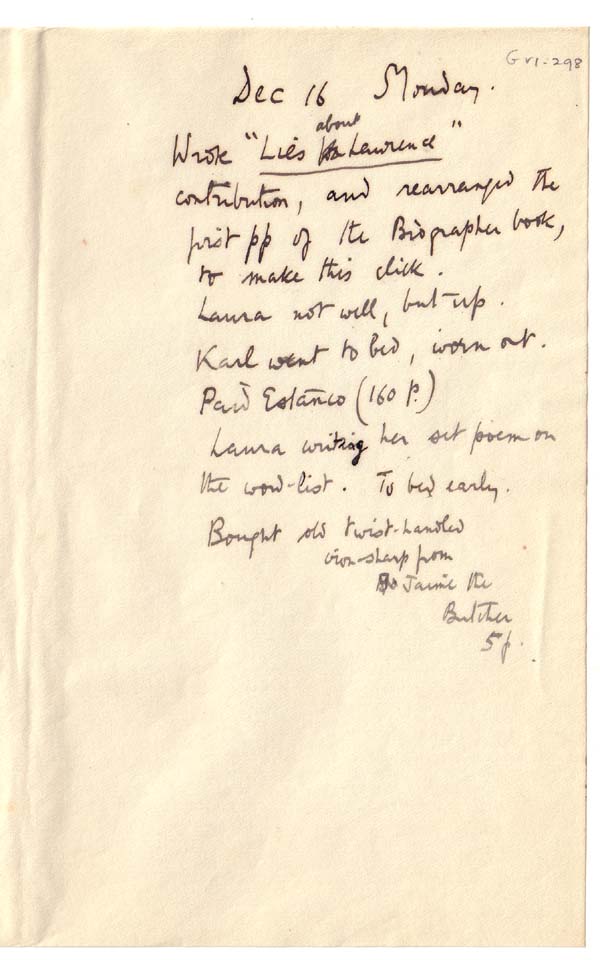 G VI-298
Dec 16 Monday.
about
Wrote "Lies Lawrence"
contribution, and rearranged the
first pp of the Biographer book,
to make this click.
Laura not well, but up.
Karl went to bed, worn out.
Paid Estanco (160 p.)
Laura writing her set poem on
the word-list. To bed early.
Bought old twist-handled
iron-sharp from
Jaime the
Butcher
5 p.